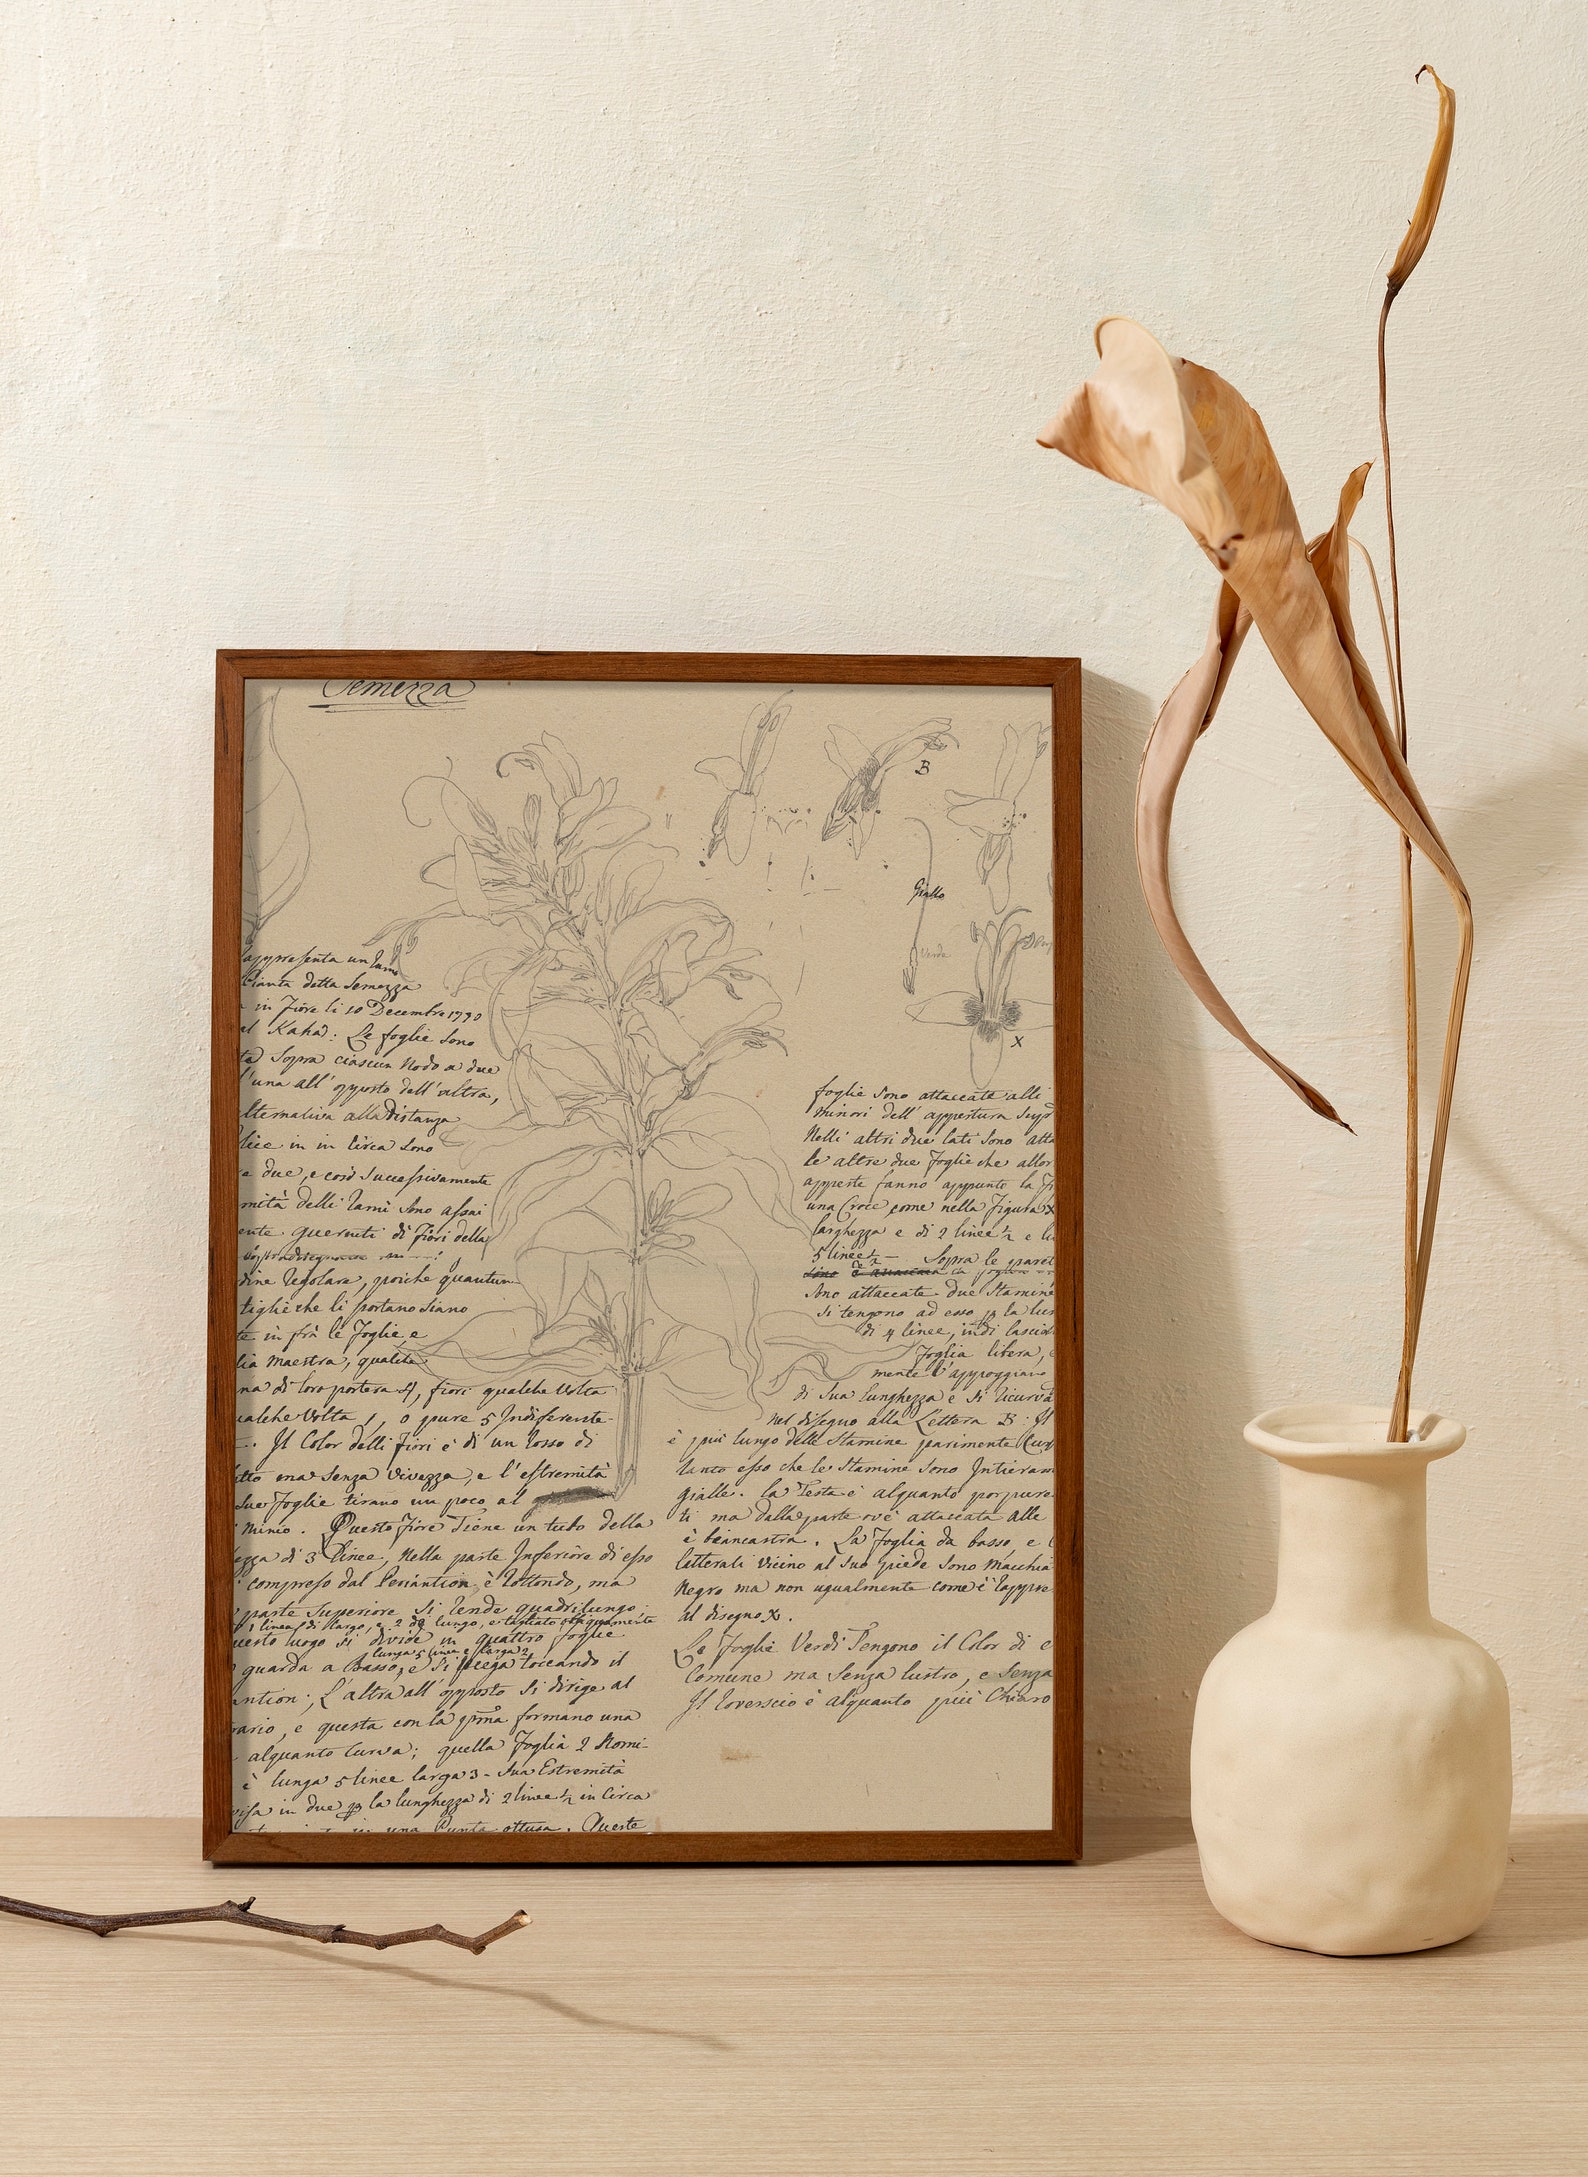 Semezza
B
Giallo
Verde
X
appresenta un Ramo
Pianta detta Semezza
in Fiore li 10 Decembre 1790
al Kahà: Le foglie sono
Sopra ciascun Nodo a due
l'una all'opposto dell'altra,
lternativa alla distanza
in in Circa sono
e due, e così Successivamente
mità delli Rami sono assai
ente guerniti di Fiori della
dine Regolare, poiche quantun
tiglie che li portano siano
te in frà le Foglie, e
lia Maestra, qualche
na di loro portera 4, fiori qualche Volta
ualche Volta 1, o pure 5 Indiferente-
Il Color delli Fiori è di un Rosso di
ma Senza Vivezza, e l'estremità
Sue Foglie tirano un poco al
Minio. Questo Fiore Tiene un tubo della
ezza di 3 linee, Nella parte Inferiore di esso
compreso dal Periantion, è Rottondo, ma
parte Superiore Si Rende quadrilungo
1 linea di largo, e 2 di lungo, e tagliato obliquamente
uesto luogo Si divide in quattro foglie
lunga 5 linee e larga 2
guarda a Basso, e Si piega toccando il
antion; L'altra all'opposto Si dirige al
rario, e questa con la pma formano una
alquanto Curva; quella Foglia 2 Nomi-
è lunga 5 linee larga 3 - Sua Estremità
visa in due la lunghezza di 2 linee ½ in Circa
una Punta ottusa. Queste
foglie Sono attaccate alli
Minori dell'appertura Sup
Nelli altri due lati Sono atta
le altre due Foglie che allor
opposte fanno appunto la Fi
una Croce come nella Figura X
larghezza e di 2 linee ½ e lu
5 linee ½ — Sopra le paret
Sono attaccate due Stamine
Si tengono ad esso la lun
di 4 linee, indi lascia
Foglia libera,
mente l'appoggiano
di Sua Lunghezza e Si Ricurva
nel disegno alla Lettera B: Il
è più lungo delle Stamine parimente Cur
tanto esso che le Stamine Sono Intieram
gialle. la Testa è alquanto porpure
ti ma dalla parte ov'è attaccata alle
è biancastra. La Foglia da basso, e
letterali Vicino al Suo piede Sono Macchia
Negro ma non ugualmente come è Rappre
al disegno X.
Le Foglie Verdi Tengono il Color di e
Comune ma Senza lustro, e Senza
Il Roverscio è alquanto più Chiaro